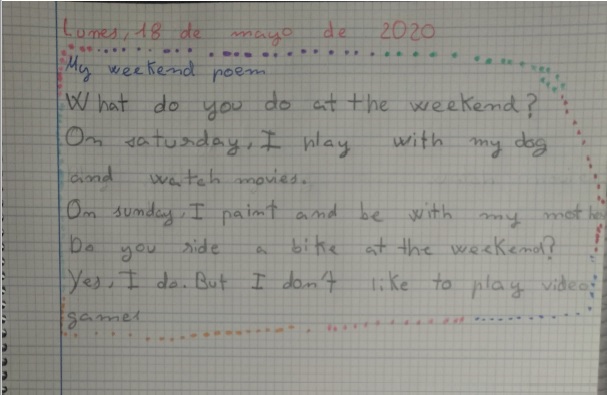 Lunes, 18 de mayo de 2020
My weekend poem
What do you do at the weekend?
On saturday, I play with my dog
and watch movies.
On sunday, I paint and be with my mother
Do you ride a bike at the weekend?
Yes, I do. But I don't like to play video
games